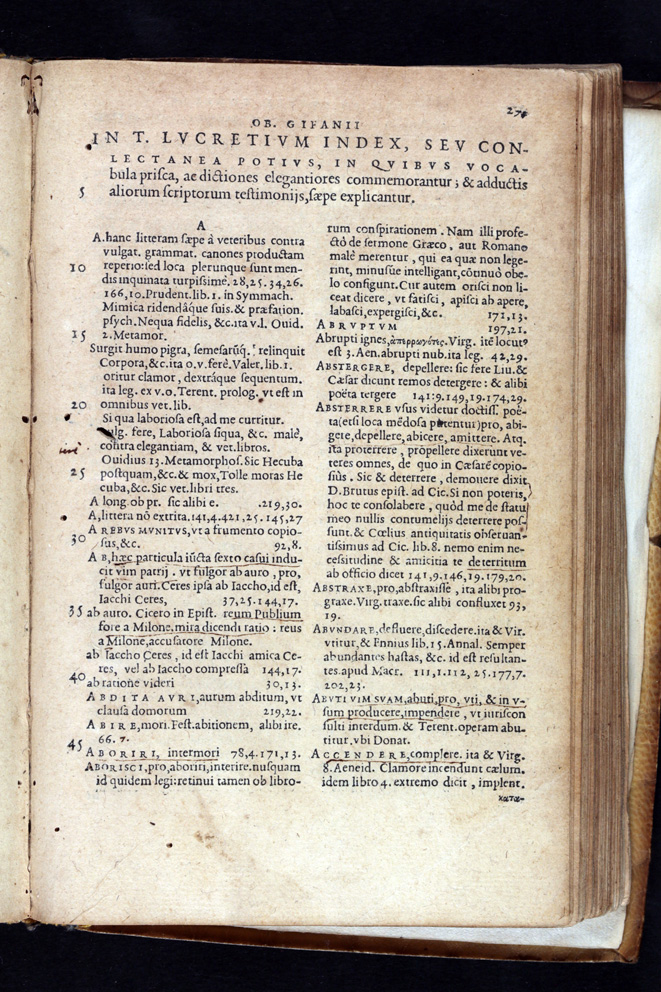 274
OB. GIFANII
IN T. LVCRETIVM INDEX, SEV CON-
LECTANEA POTIVS, IN QVIBVS VOCA-
bula prisca, ac dictiones elegantiores commemorantur; & adductis
5 aliorum scriptorum testimonijs, sæpe explicantur.
A
A. hanc litteram sæpe à veteribus contra
vulgat. grammat. canones productam
10 reperio: sed loca plerunque sunt men-
dis inquinata turpissimè. 28,25.34,26.
166,10. Prudent. lib. 1. in Symmach.
Mimica ridendáque suis. & præfation.
psych. Nequa fidelis, &c. ita v. l. Ouid.
15 2. Metamor.
Surgit humo pigra, semesarúq; relinquit
Corpora, &c. ita o. v. ferè. Valer. lib. 1.
oritur clamor, dextráque sequentum.
ita leg. ex v. o. Terent. prolog. vt est in
20 omnibus vet. lib.
Si qua laboriosa est, ad me curritur.
vulg. fere, Laboriosa siqua, &c. malè,
contra elegantiam, & vet. libros.
Ouidius 13. Metamorphos. Sic Hecuba
25 postquam, &c. & mox, Tolle moras He
cuba, &c. Sic vet. libri tres.
A long. ob pr. sic alibi e. .219,30.
A, littera nō extrita. 141,4.421,25.145,27
A REBVS MVNITVS, vt a frumento copio-
30 sus, &c. 92,8.
AB, hæc particula iūcta sexto casui indu-
cit vim patrij. vt fulgor ab auro, pro,
fulgor auri. Ceres ipsa ab Iaccho, id est,
Iacchi Ceres, 37,25.144,17.
35 ab auro. Cicero in Epist. reum Publium
fore a Milone, mira dicendi ratio: reus
a Milone, accusatore Milone.
ab Iaccho Ceres, id est Iacchi amica Ce-
res, vel ab Iaccho compressa 144,17.
40 ab ratione videri 30,13.
ABDITA AVRI, aurum abditum, vt
clausa domorum 219,22.
ABIRE, mori. Fest. abitionem, alibi ire.
66.7.
45 ABORIRI, intermori 78,4.171,13.
ABORISCI, pro, aboriri, interire. nusquam
id quidem legi: retinui tamen ob libro-
rum conspirationem. Nam illi profe-
ctò de sermone Græco, aut Romano
malè merentur, qui ea quæ non lege-
rint, minusúe intelligant, cōtinuò obe-
lo configunt. Cur autem orisci non li-
ceat dicere, vt fatisci, apisci ab apere,
labasci, expergisci, &c. 171,13.
ABRVPTVM 197,21.
Abrupti ignes, ἀπερρωγότες. Virg. itē locutº
est 3. Aen. abrupti nub. ita leg. 42,29.
ABSTERGERE, depellere: sic fere Liu. &
Cæsar dicunt remos detergere: & alibi
poëta tergere 141:9.149,19.174,29.
ABSTERRERE vsus videtur doctiss. poë-
ta (etsi loca mēdosa pútentui) pro, abi-
gere, depellere, abicere, amittere. Atq.
ita proterrere, propellere dixerunt ve-
teres omnes, de quo in Cæsarē copio-
siùs. Sic & deterrere, demouere dixit
D. Brutus epist. ad Cic. Si non poteris,
hoc te consolabere, quòd me de statu
meo nullis contumelijs deterrere pos-
sunt. & Cœlius antiquitatis obseruan-
tissimus ad Cic. lib. 8. nemo enim ne-
cessitudine & amicitia te deterritum
ab officio dicet 141,9.146,19.179,20.
ABSTRAXE, pro, abstraxisse, ita alibi pro-
graxe. Virg. traxe. sic alibi confluxet 93,
19.
ABVNDARE, defluere, discedere. ita & Vir.
vtitur, & Ennius lib. 15. Annal. Semper
abundantes hastas, &c. id est resultan-
tes. apud Macr. 111,1.112,25.177,7.
202,23.
ABVTI VIM SVAM, abuti, pro, vti, & in v-
sum producere, impendere, vt iuriscon
sulti interdum. & Terent. operam abu-
titur. vbi Donat.
ACCENDERE, complere. ita & Virg.
8. Aeneid. Clamore incendunt cælum.
idem libro 4. extremo dicit, implent.
κατα-